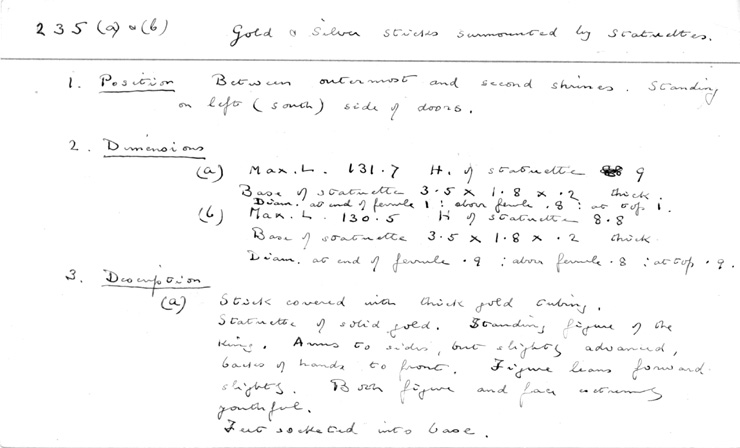 235 (a) & (b) Gold & Silver sticks surmounted by statuettes.
1. Position Between outermost and second shrines. Standing
on left (south) side of doors.
2. Dimensions
(a) Max. L. 131.7 H. of statuette 9
Base of statuette 3.5 x 1.8 x .2 thick.
Diam. at end of ferrule 1 : above ferrule .8 : at top 1.
(b) Max. L. 130.5 H of statuette 8.8
Base of statuette 3.5 x 1.8 x .2 thick
Diam. at end of ferrule .9 : above ferrule .8 : at top .9.
3. Description
(a) Stick covered with thick gold tubing.
Statuette of solid gold. Standing figure of the
king. Arms to sides, but slightly advanced,
backs of hands to front. Figure leans forward
slightly. Both figure and face extremely
youthful.
Feet socketed into base.